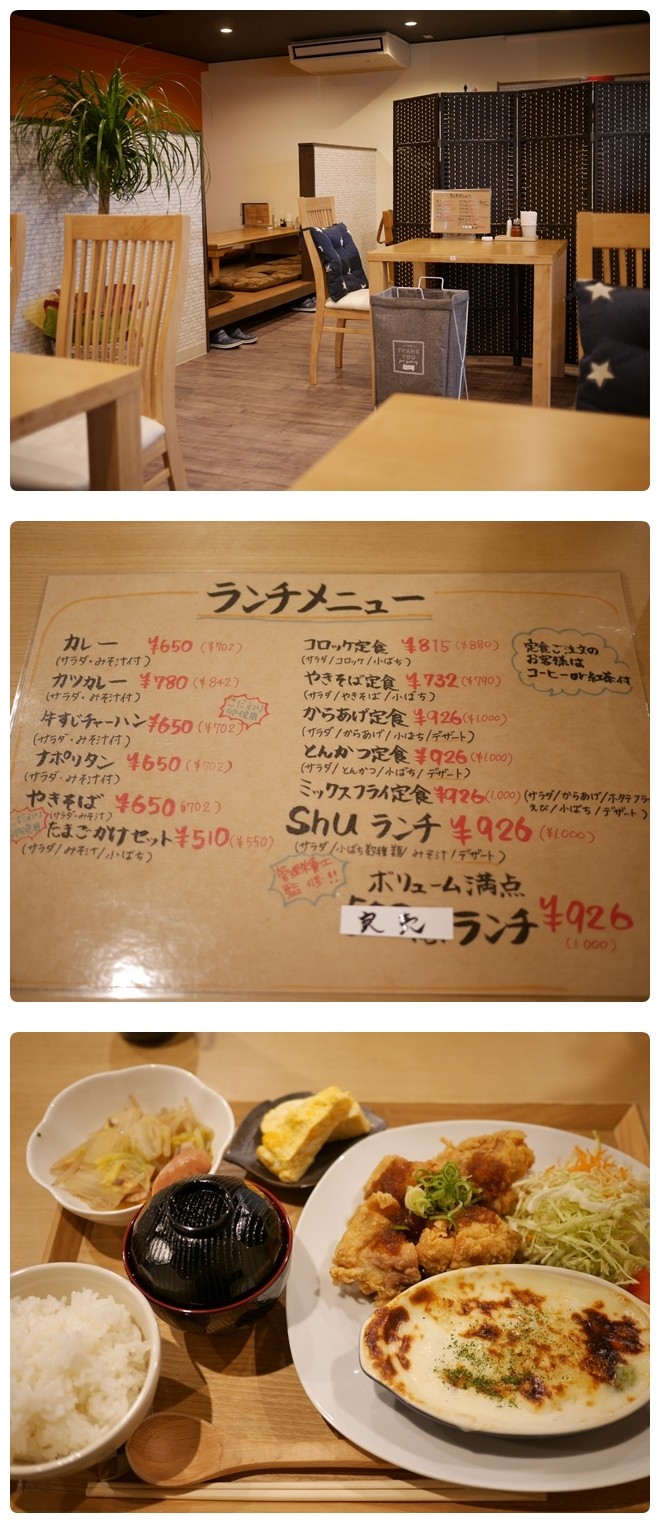 THANK
YOU
ランチメニュー
カレー ¥650 (¥702)
(サラダ・みそ汁付)
カツカレー ¥780 (¥842)
(サラダ・みそ汁付)
牛すじチャーハン ¥650 (¥702)
(サラダ・みそ汁付)
ナポリタン ¥650 (¥702)
(サラダ・みそ汁付)
やきそば ¥650 (702)
(サラダ・みそ汁)
たまごかけセット ¥510 (¥550)
(サラダ/みそ汁/小ばち)
コロッケ定食 ¥815 (¥880)
(サラダ/コロッケ/小ばち)
やきそば定食 ¥732 (¥790)
(サラダ/やきそば/小ばち)
からあげ定食 ¥926 (¥1.000)
(サラダ/からあげ/小ばち/デザート)
とんかつ定食 ¥926 (¥1.000)
(サラダ/とんかつ/小ばち/デザート)
ミックスフライ定食 ¥926 (1.000) (サラダ/からあげ/ホタテフラ
えび/小ばち/デザート)
Shu ランチ ¥926 (¥1.000)
(サラダ/小ばち数種類/みそ汁/デザート)
管理栄養士
監修!!
ボリューム満点
ランチ ¥926
(1.000)
定食ご注文の
お客様は
コーヒーor紅茶付